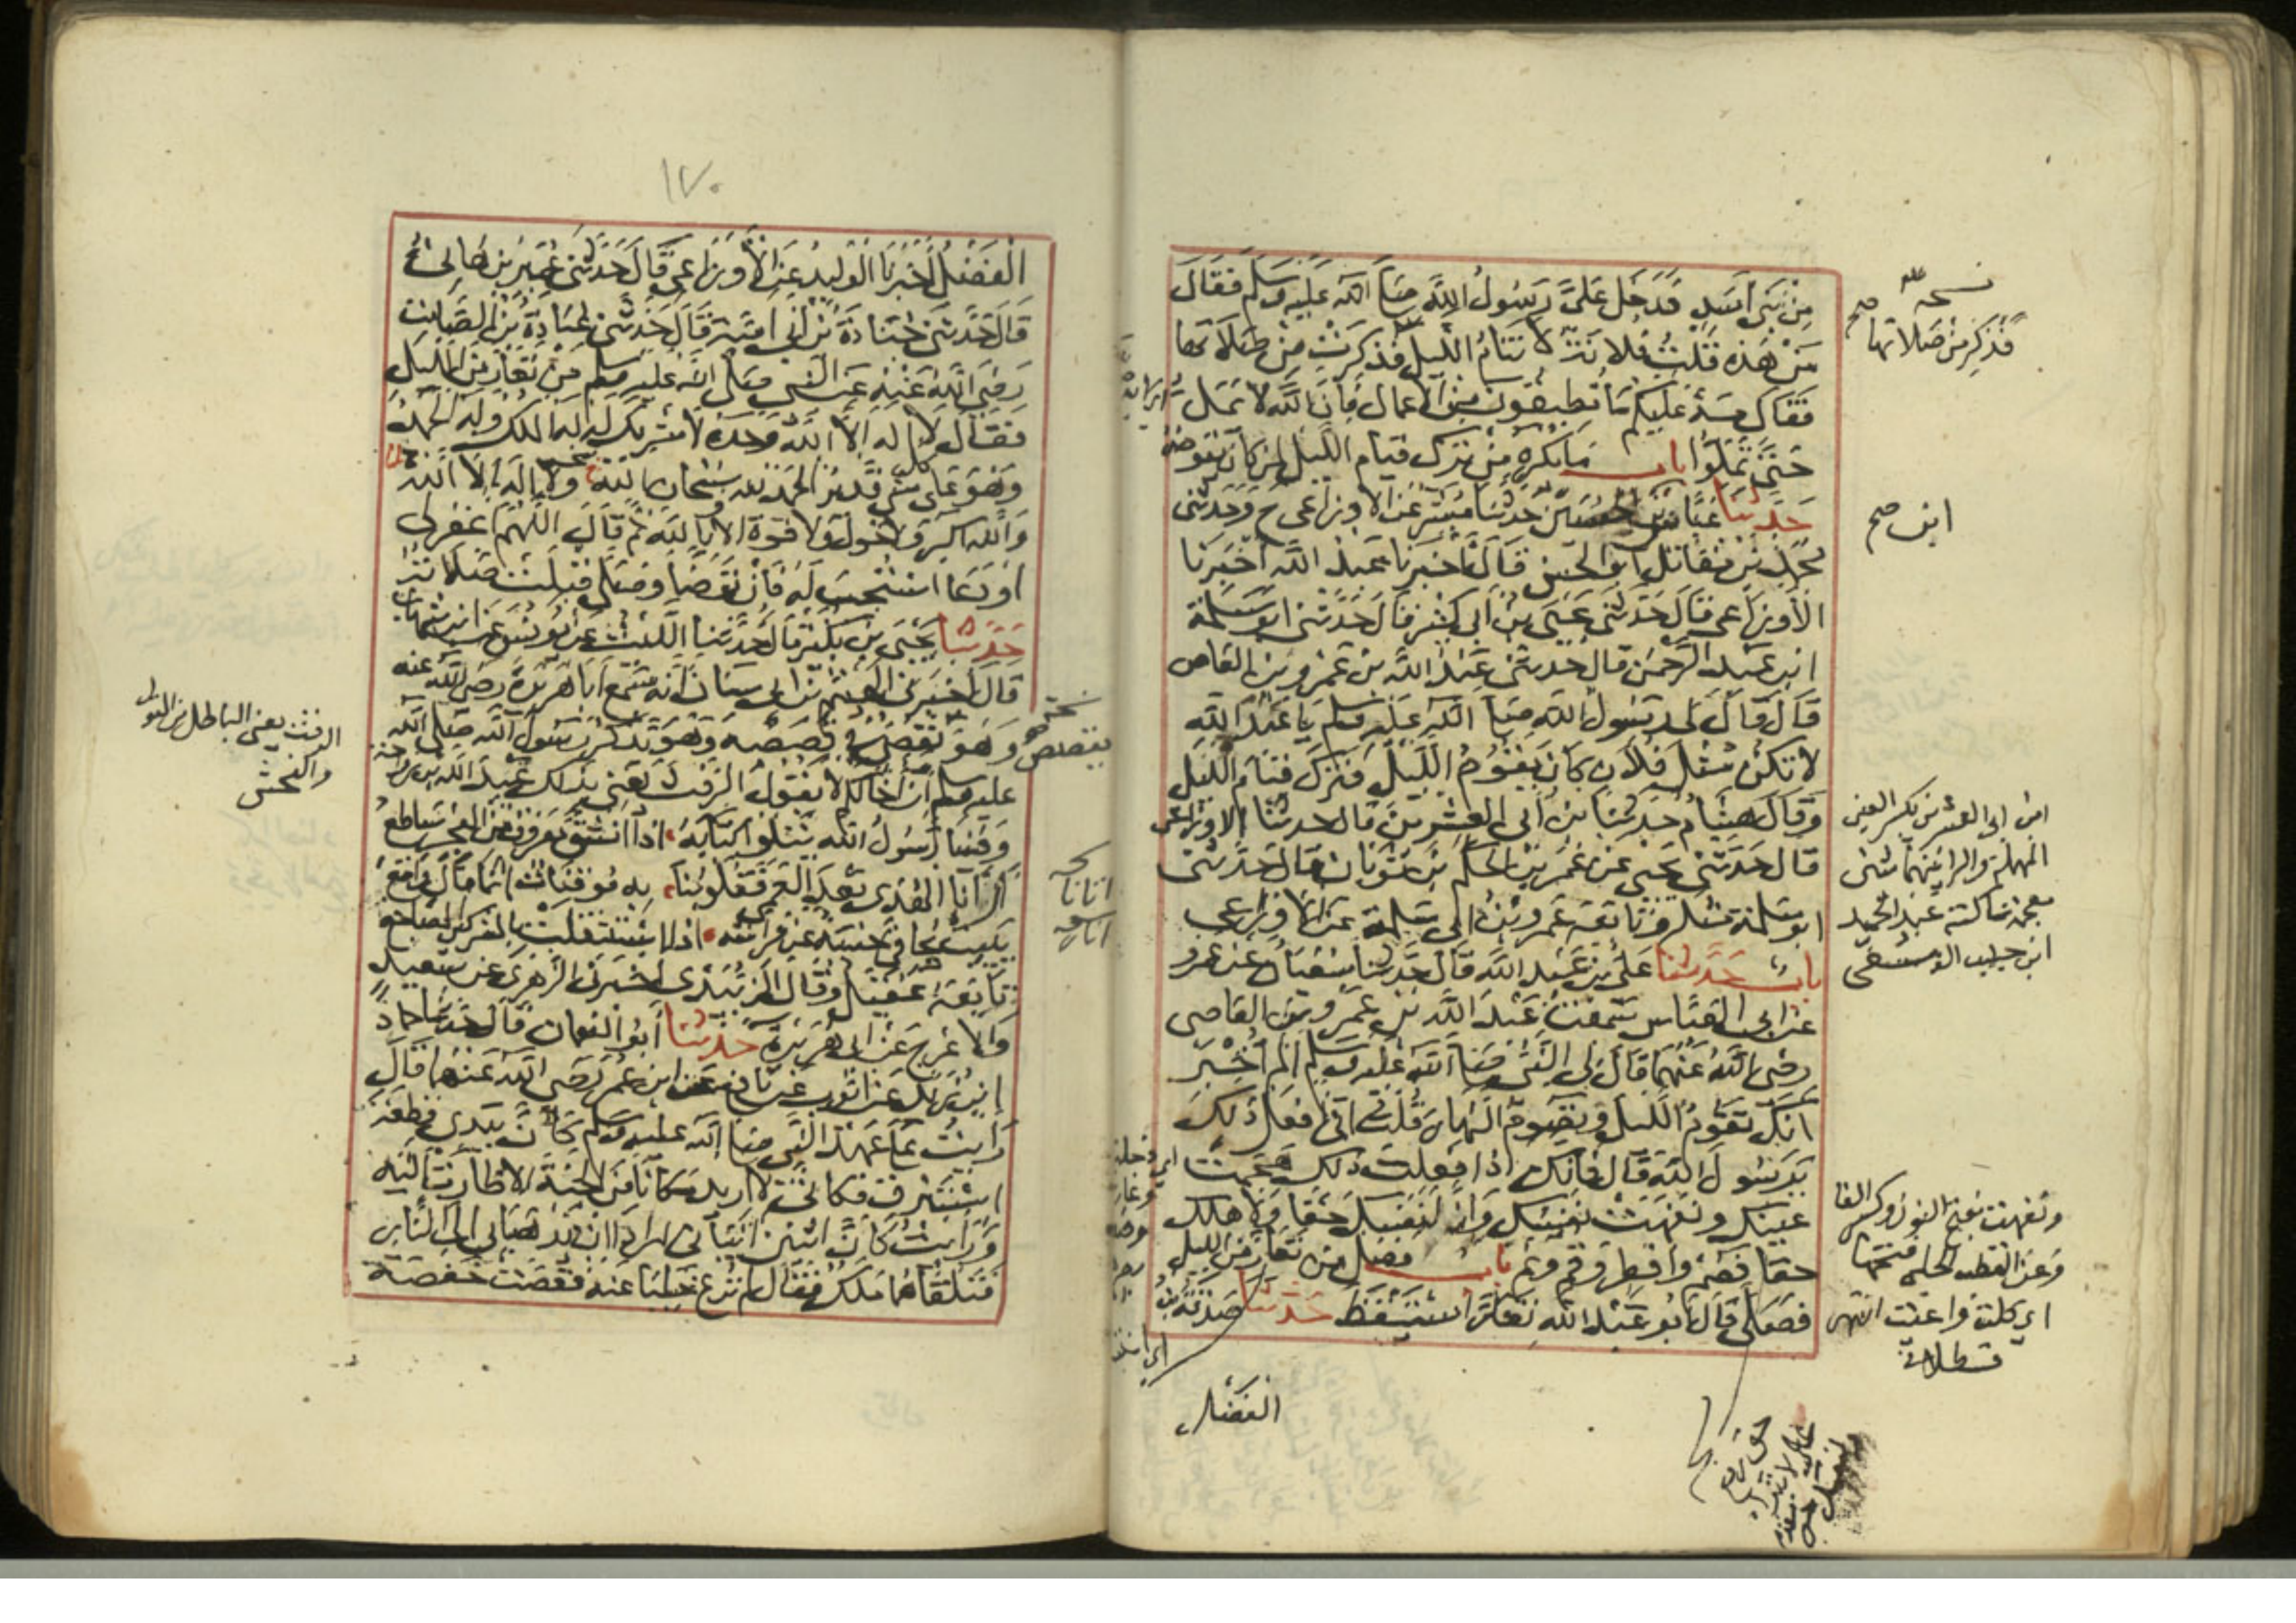 من بني اسد فدخل علي رسول الله صلى الله عليه وسلم فقال
من هذه قلت فلانة لا تنام الليل فذكرت من صلاتها
فقال مه عليكم ما تطيقون من الاعمال فان الله لا يمل
حتى تملوا باب ما يكره من ترك قيام الليل لمن كان يقومه
حدثنا عباس بن حسين حدثنا مبشر عن الاوزاعي ح وحدثني
محمد بن مقاتل ابو الحسن قال اخبرنا عبد الله اخبرنا
الاوزاعي قال حدثني يحيى بن ابي كثير قال حدثني ابو سلمة
ابن عبد الرحمن قال حدثني عبد الله بن عمرو بن العاص
قال قال لي رسول الله صلى الله عليه وسلم يا عبد الله
لا تكن مثل فلان كان يقوم الليل فترك قيام الليل
وقال هشام حدثنا بن ابي العشرين قال حدثنا الاوزاعي
قال حدثني يحيى عن عمر بن الحكم بن ثوبان قال حدثني
ابو سلمة مثله وتابعه عمرو بن ابي سلمة عن الاوزاعي
باب حدثنا علي بن عبد الله قال حدثنا سفيان عن عمرو
عن ابي العباس سمعت عبد الله بن عمرو بن العاصي
رضي الله عنهما قال لي النبي صلى الله عليه وسلم الم اخبر
انك تقوم الليل وتصوم النهار قلت اني افعل ذلك
يا رسول الله قال فانك اذا فعلت ذلك هجمت
عينك ونفهت نفسك وان لنفسك حقا ولاهلك
حقا فصم وافطر وقم ونم باب فضل من تعار من الليل
فصلى قال ابو عبد الله تعار استيقظ حدثنا صدقة بن
الفضل
نسخه
فذكر من صلاتها صح
ابن صح
ابن ابي العشرين بكسر العين
المهملة والراء بينهما شين
معجمة ساكنة عبد الحميد
ابن حبيب الدمشقي
ونفهت بفتح النون وكسر الفا
وعن القطب الحلبي فتحها
اي كلت واعيت انتهى
قسطلاني
١٧٠
الفضل اخبرنا الوليد عن الاوزاعي قال حدثني عمير بن هانئ
قال حدثني جنادة بن ابي امية قال حدثني عبادة بن الصامت
رضي الله عنه عن النبي صلى الله عليه وسلم من تعار من الليل
فقال لا اله الا الله وحده لا شريك له له الملك وله الحمد
وهو على كل شي قدير الحمد لله سبحان الله ولا اله الا الله
والله اكبر ولا حول ولا قوة الا بالله ثم قال اللهم اغفر لي
او دعا استجيب له فان توضا وصلى قبلت صلاته
حدثنا يحيى بن بكير قال حدثنا الليث عن يونس عن ابن شهاب
قال اخبرني الهيثم بن ابي سنان انه سمع ابا هريرة رضي الله عنه
وهو يقص في قصصه وهو يذكر رسول الله صلى الله
عليه وسلم ان اخا لكم لا يقول الرفث يعني بذلك عبد الله بن رواحة
وفينا رسول الله يتلو كتابه اذا انشق معروف من الفجر ساطع
ارانا الهدى بعد العمى فقلوبنا به موقنات ان ما قال واقع
يبيت يجافي جنبه عن فراشه اذا استثقلت بالمشركين المضاجع
تابعه عقيل وقال الزبيدي اخبرني الزهري عن سعيد
والاعرج عن ابي هريرة حدثنا ابو النعمان قال حدثنا حماد
ابن زيد عن ايوب عن نافع عن ابن عمر رضي الله عنهما قال
رايت على عهد النبي صلى الله عليه وسلم كان بيدي قطعة
استبرق فكاني لا اريد مكانا من الجنة الا طارت اليه
ورايت كان اثنين اتياني ارادا ان يذهبا بي الى النار
فتلقاهما ملك فقال لم ترع خليا عنه فقصت حفصة
نسخه
يقصص
نسخه
اتانا
الرفث يعني الباطل من القول
والفحش